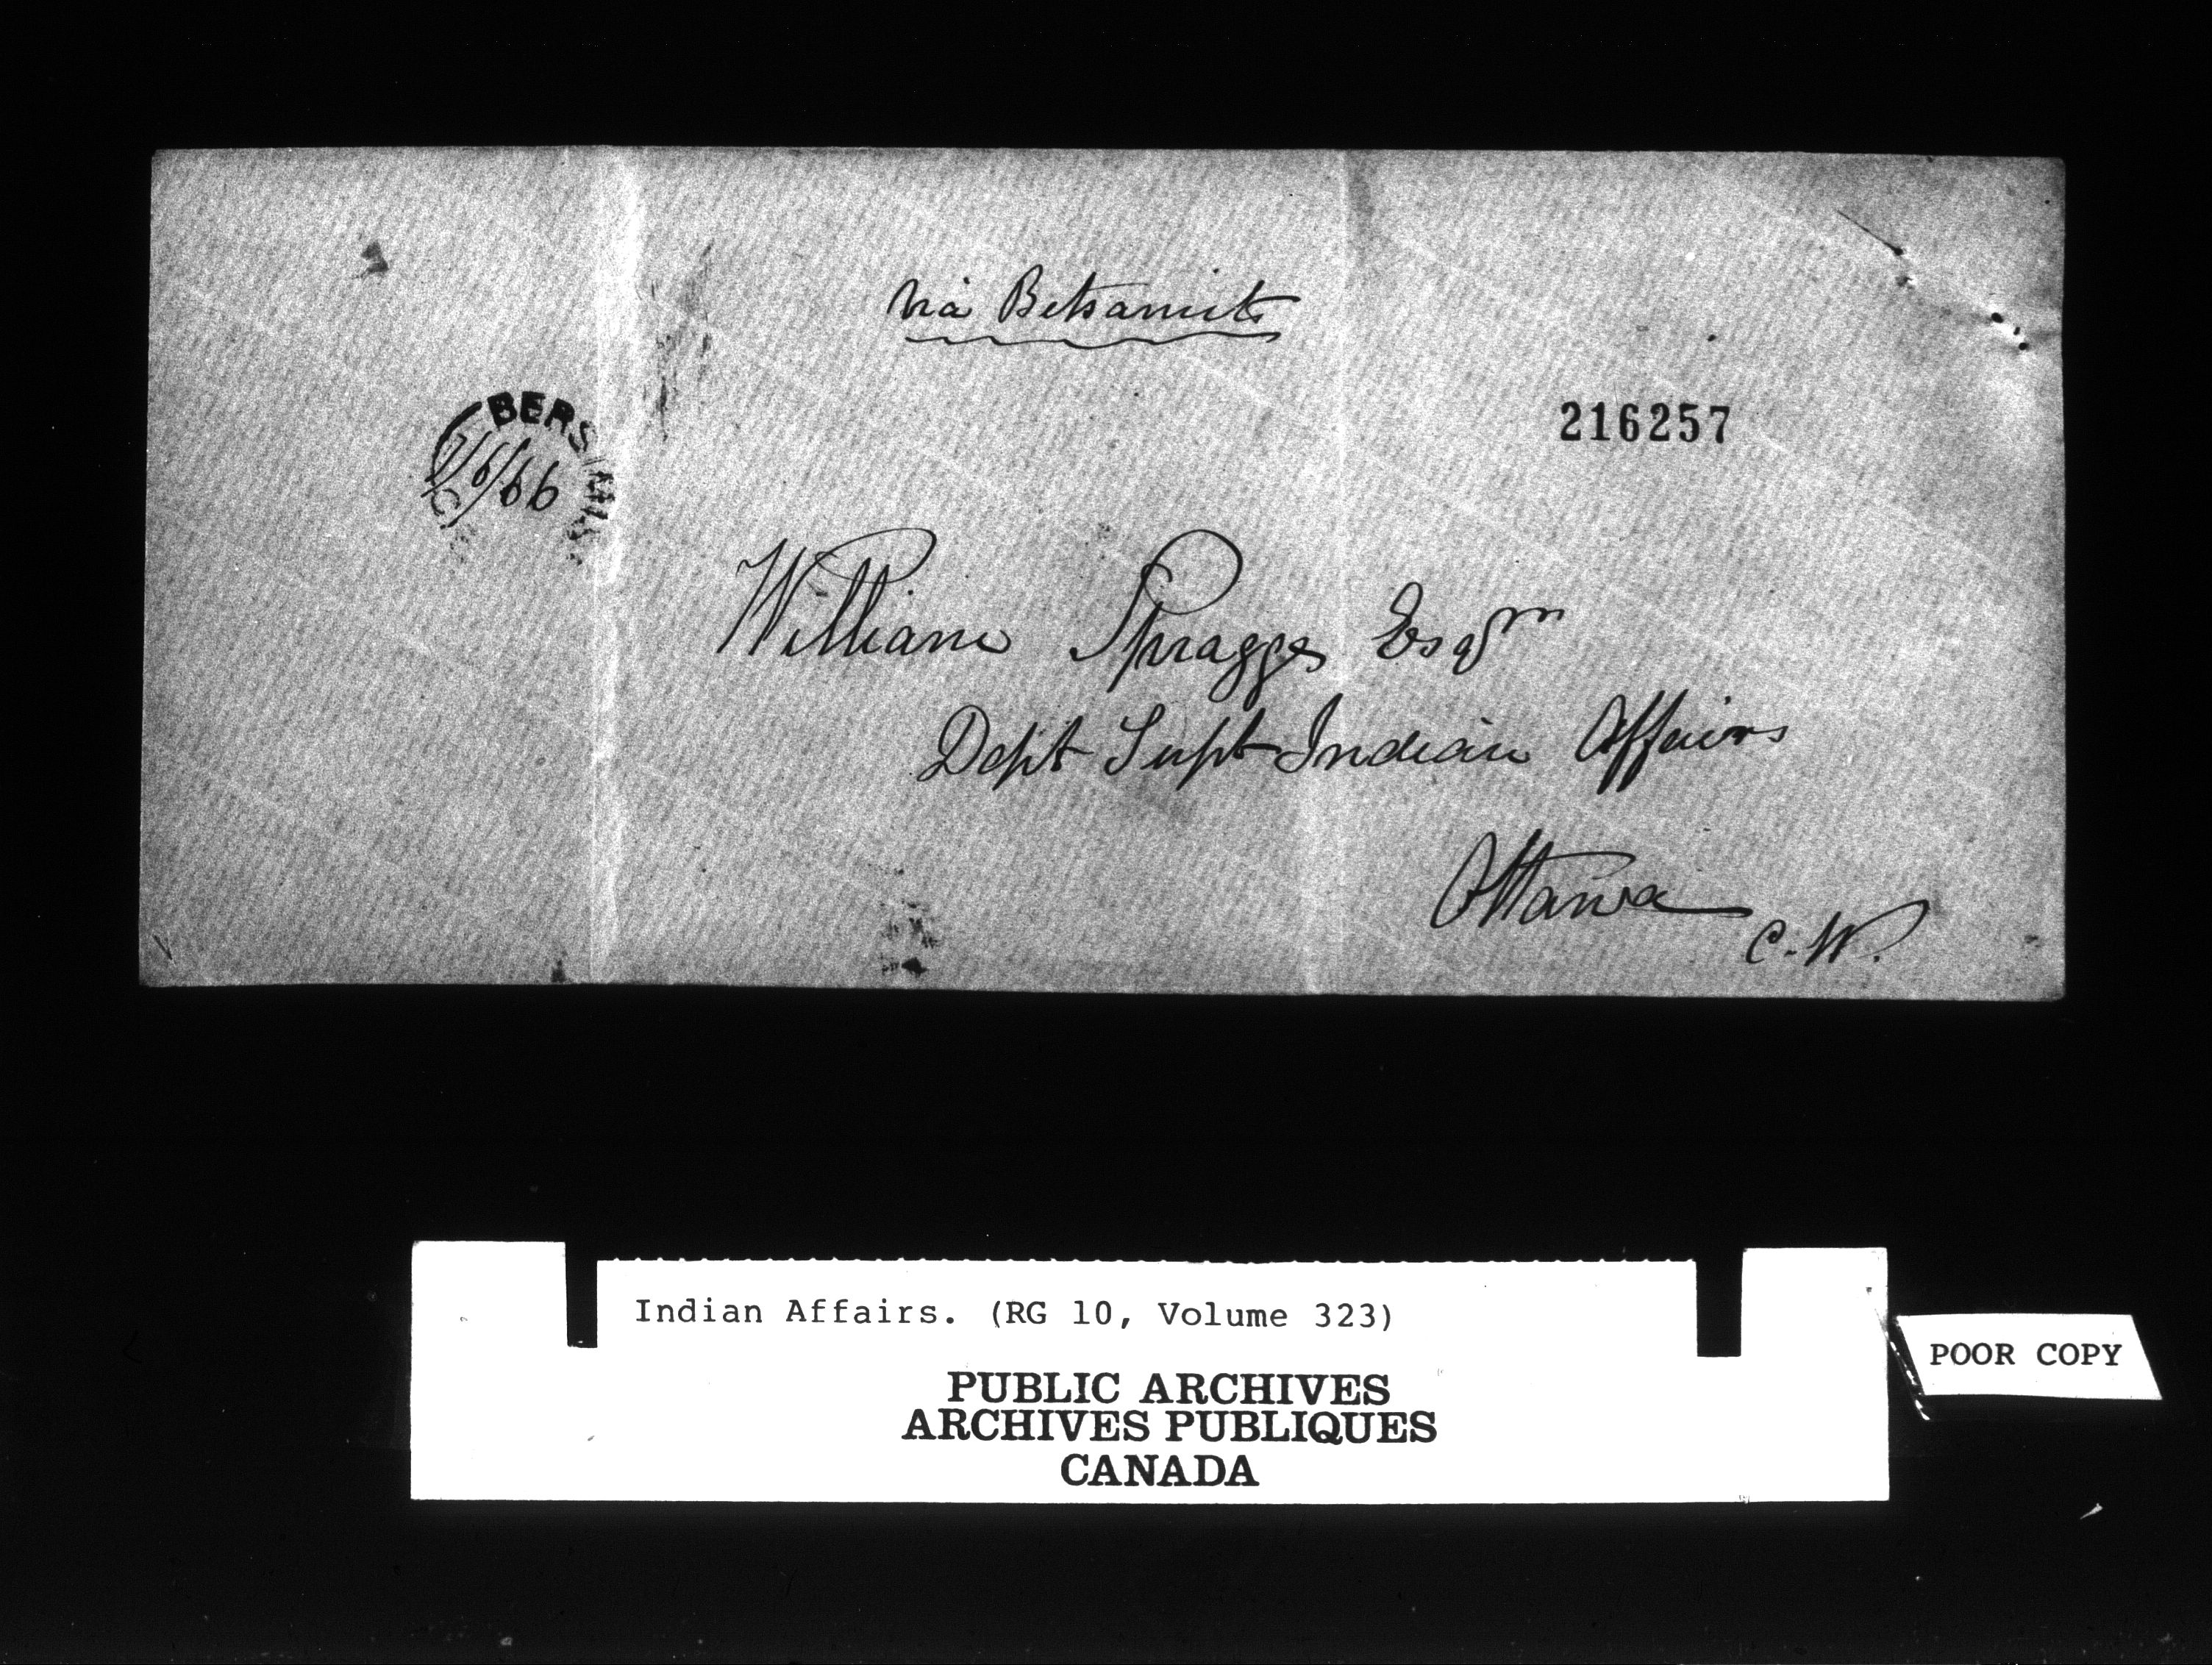 via Betsamits
BERSIMIS
7/6/66
216257
William Spragge Esqre
Dept Supt Indian Affairs
Ottawa
C.W.
Indian Affairs. (RG 10, Volume 323)
PUBLIC ARCHIVES
ARCHIVES PUBLIQUES
CANADA
POOR COPY